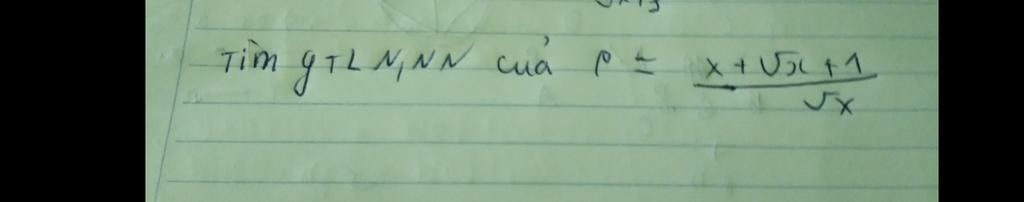 Tìm gTLN, NN của P = x + √x + 1 / √x